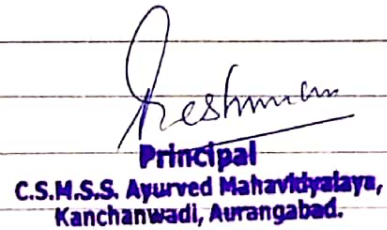 Principal
C.S.M.S.S. Ayurved Mahavidyalaya,
Kanchanwadi, Aurangabad.